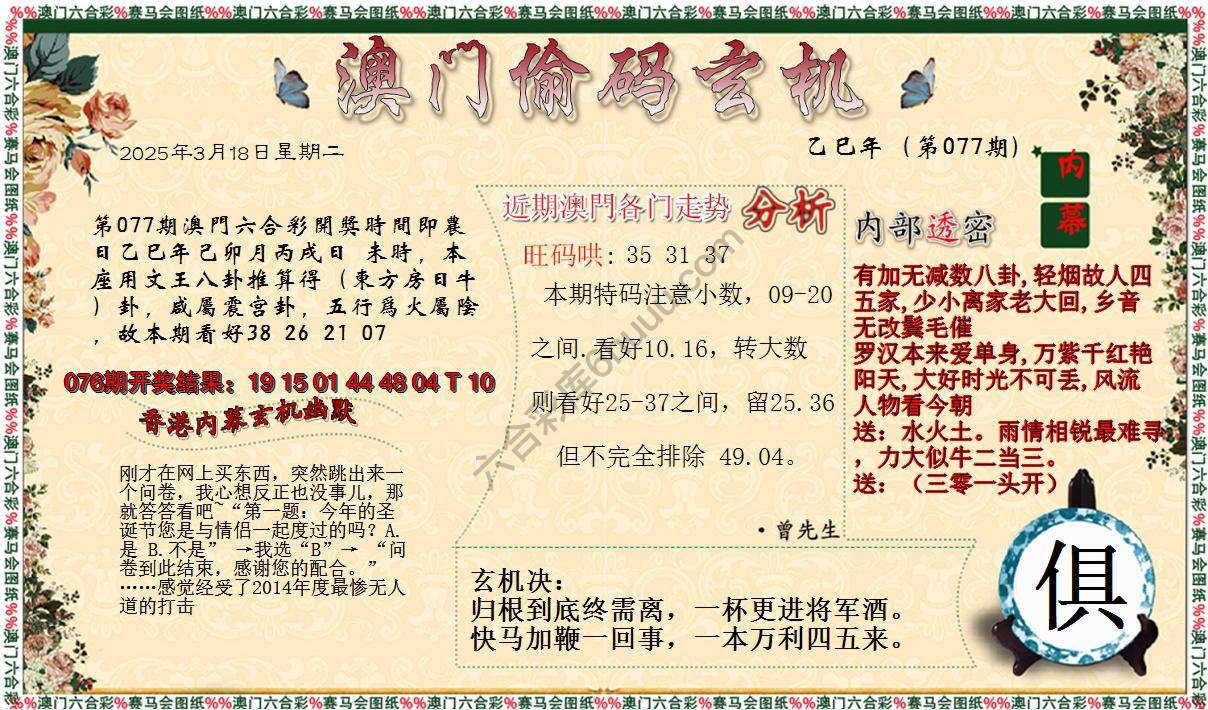 %%澳门六合彩%赛马会图纸%%澳门六合彩%赛马会图纸%%澳门六合彩%赛马会图纸%%澳门六合彩%赛马会图纸%%澳门六合彩%赛马会图纸%%澳门六合彩%赛马会图纸%%澳门六合彩%赛马会图纸%%
澳门偷码玄机
2025年3月18日星期二
乙巳年（第077期）
内幕
第077期澳門六合彩開獎時間即農
日乙巳年己卯月丙戌日 未時，本
座用文王八卦推算得（東方房日牛
）卦，咸屬震宫卦，五行爲火屬陰
，故本期看好38 26 21 07
076期开奖结果：19 15 01 44 48 04 T 10
香港内幕玄机幽默
刚才在网上买东西，突然跳出来一
个问卷，我心想反正也没事儿，那
就答答看吧~“第一题：今年的圣
诞节您是与情侣一起度过的吗？A.
是 B.不是” →我选“B”→ “问
卷到此结束，感谢您的配合。”
……感觉经受了2014年度最惨无人
道的打击
近期澳門各门走势 分析
旺码哄: 35 31 37
本期特码注意小数，09-20
之间.看好10.16，转大数
则看好25-37之间，留25.36
但不完全排除 49.04。
·曾先生
内部透密
有加无减数八卦,轻烟故人四
五家,少小离家老大回,乡音
无改鬓毛催
罗汉本来爱单身,万紫千红艳
阳天,大好时光不可丢,风流
人物看今朝
送：水火土。雨情相锐最难寻
，力大似牛二当三。
送：（三零一头开）
玄机决：
归根到底终需离，一杯更进将军酒。
快马加鞭一回事，一本万利四五来。
俱